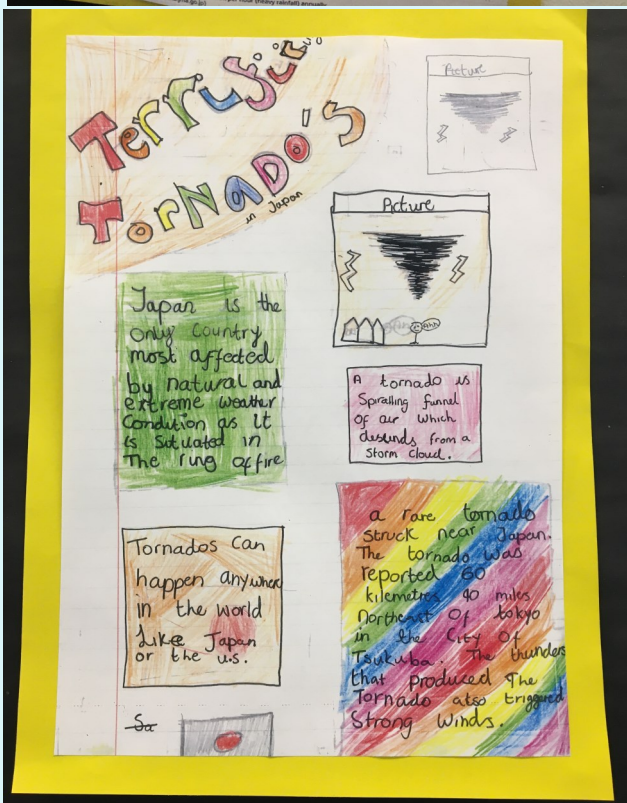 Terrufuir
TorNADO's
in Japan
Picture
Picture
Ahh
Japan is the
only Country
most affected
by natural and
extreme weather
Condition as it
is Situated in
The ring of fire
A tornado is
Spiralling funnel
of air which
desends from a
Storm Cloud.
Tornados Can
happen anywhere
in the world
Like Japan
or the u.s.
a rare tornado
struck near Japan.
The tornado was
reported 60
kilemetres 40 miles
Northeast Of tokyo
in the City Of
Tsukuba. The thunders
that produced The
Tornado also triggered
Strong Winds.
Sa